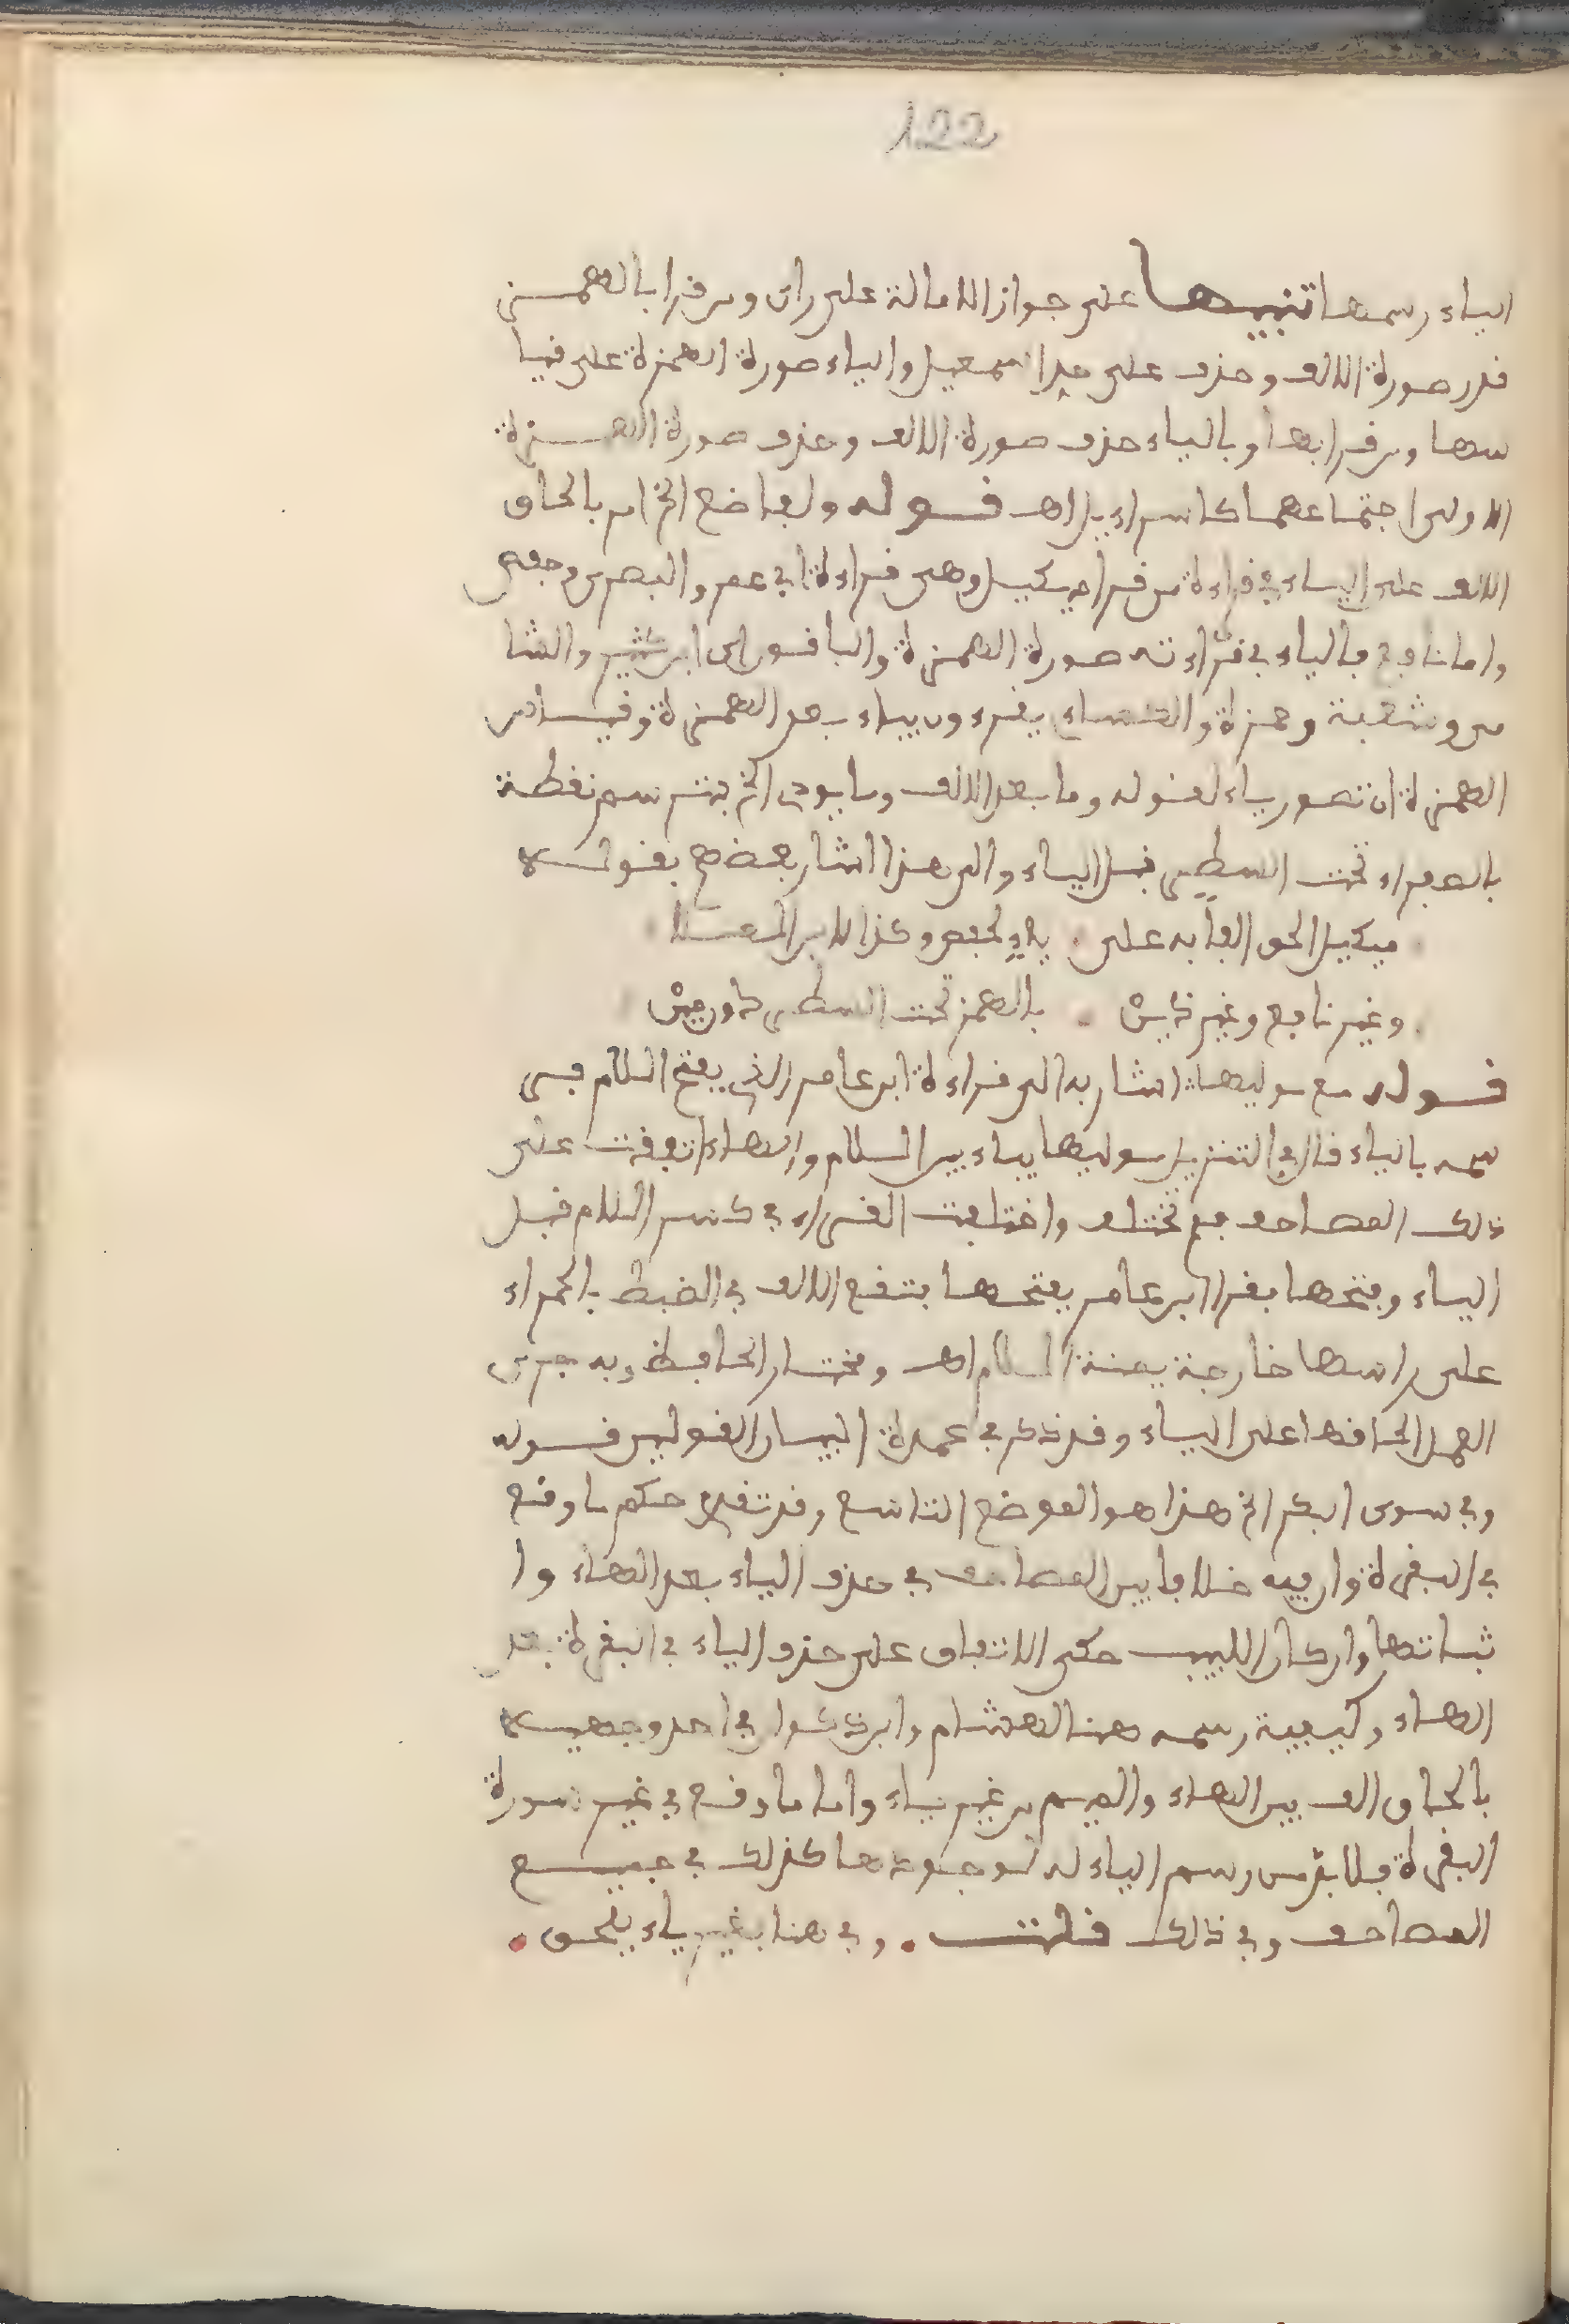 122
الياء رسمها تنبيها على جواز الامالة على راى ومن قرا بالهمز
قدر صورة الالف وحذف على حد اسمعيل والياء صورة الهمزة على قيا
سها ومن قرا بها وبالياء حذف صورة الالف وحذف صورة الهمزة
الاولى اجتماعهما كاسراءيل اهـ قوله ولهاضع الخ امر بالحاق
الالف على الياء في قراءة من قرا ميكيل وهي قراءة ابي عمرو البصري وحفص
واما نافع فالياء في قراءته صورة الهمزة والباقون اى ابن كثير والشا
مي وشعبة وحمزة والكساءي يقرءون بياء بعد الهمزة وقياس
الهمزة ان تصور ياء لقوله وما بعد الالف وما يودى الخ فترسم نقطة
بالصفراء تحت السطر قبل الياء والى هذا اشار بعضهم بقوله
ميكيل الحق الفا به على . ياء لحفص وكذا لابن العلا
. وغير نافع وغير ذين . بالهمز تحت السطر دون مين
قوله مع موليها اشار به الى قراءة ابن عامر الذي يفتح اللام فير
سمه بالياء قال في التنزيل موليها بياء بين اللام والهاء اتفقت على
ذلك المصاحف فلم تختلف واختلفت القراء في كسر اللام قبل
الياء وفتحها فقرا ابن عامر بفتحها فتقع الالف في الضبط بالحمراء
على راسها خارجة يمنة اللام اهـ ومختار الحافظ وبه جرى
العمل الحاقها على الياء وقد ذكر في عمدة البيان القولين قوله
وفي سوى البكر الخ هذا هو الموضع التاسع وقد تقدم حكم ما وقع
في البقرة وان فيه خلافا بين المصاحف في حذف الياء بعد الهاء وا
ثباتها وان كان اللبيب حكى الاتفاق على حذف الياء في البقرة بعد
الهاء وكيفية رسمه هنا لهشام وابن ذكوان في احد وجهيه
بالحاق الف بين الهاء والميم من غير ياء واما ما وقع في غير سورة
البقرة فلا بد من رسم الياء له لوجودها كذلك في جميع
المصاحف وفي ذلك قلت . وفي هنا بغير ياء يلحق .